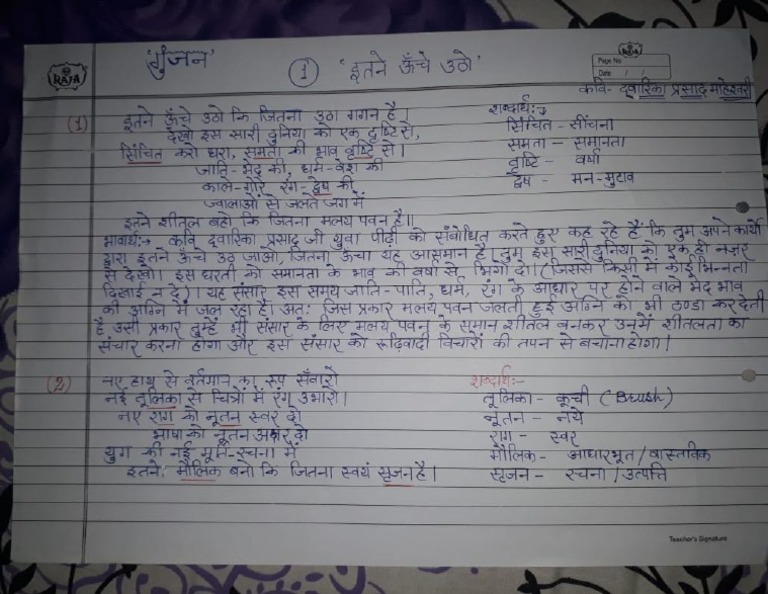 'गुंजन'
1 'इतने ऊँचे उठो'
RAJA
RAJA
Page No.
Date / /
कवि- द्वारिका प्रसाद माहेश्वरी
(1) इतने ऊँचे उठो कि जितना उठा गगन है।
देखो इस सारी दुनिया को एक दृष्टि से,
सिंचित करो धरा, समता की भाव वृष्टि से।
जाति-भेद की, धर्म-वेश की
काले-गोरे रंग-द्वेष की
ज्वालाओं से जलते जग में
इतने शीतल बहो कि जितना मलय पवन है॥
शब्दार्थ:→
सिंचित - सींचना
समता - समानता
वृष्टि - वर्षा
द्वेष - मन-मुटाव
भावार्थ:→ कवि द्वारिका प्रसाद जी युवा पीढ़ी को संबोधित करते हुए कह रहे हैं कि तुम अपने कार्यों
द्वारा इतने ऊँचे उठ जाओ, जितना ऊँचा यह आसमान है। तुम इस सारी दुनिया को एक ही नज़र
से देखो। इस धरती को समानता के भाव की वर्षा से भिगो दो। (जिससे किसी में कोई भिन्नता
दिखाई न दे।) यह संसार इस समय जाति-पाति, धर्म, रंग के आधार पर होने वाले भेद भाव
की अग्नि में जल रहा है। अतः जिस प्रकार मलय पवन जलती हुई अग्नि को भी ठण्डा कर देती
है उसी प्रकार तुम्हें भी संसार के लिए मलय पवन के समान शीतल बनकर उनमें शीतलता का
संचार करना होगा और इस संसार को रूढ़िवादी विचारों की तपन से बचाना होगा।
(2) नए हाथ से वर्तमान का रूप सँवारो
नई तूलिका से चित्रों में रंग उभारो।
नए राग को नूतन स्वर दो
भाषा को नूतन अक्षर दो
युग की नई मूर्ति-रचना में
इतने मौलिक बनो कि जितना स्वयं सृजन है।
शब्दार्थ:-
तूलिका - कूची (Brush)
नूतन - नये
राग - स्वर
मौलिक - आधारभूत/वास्तविक
सृजन - रचना/उत्पत्ति
Teacher's Signature